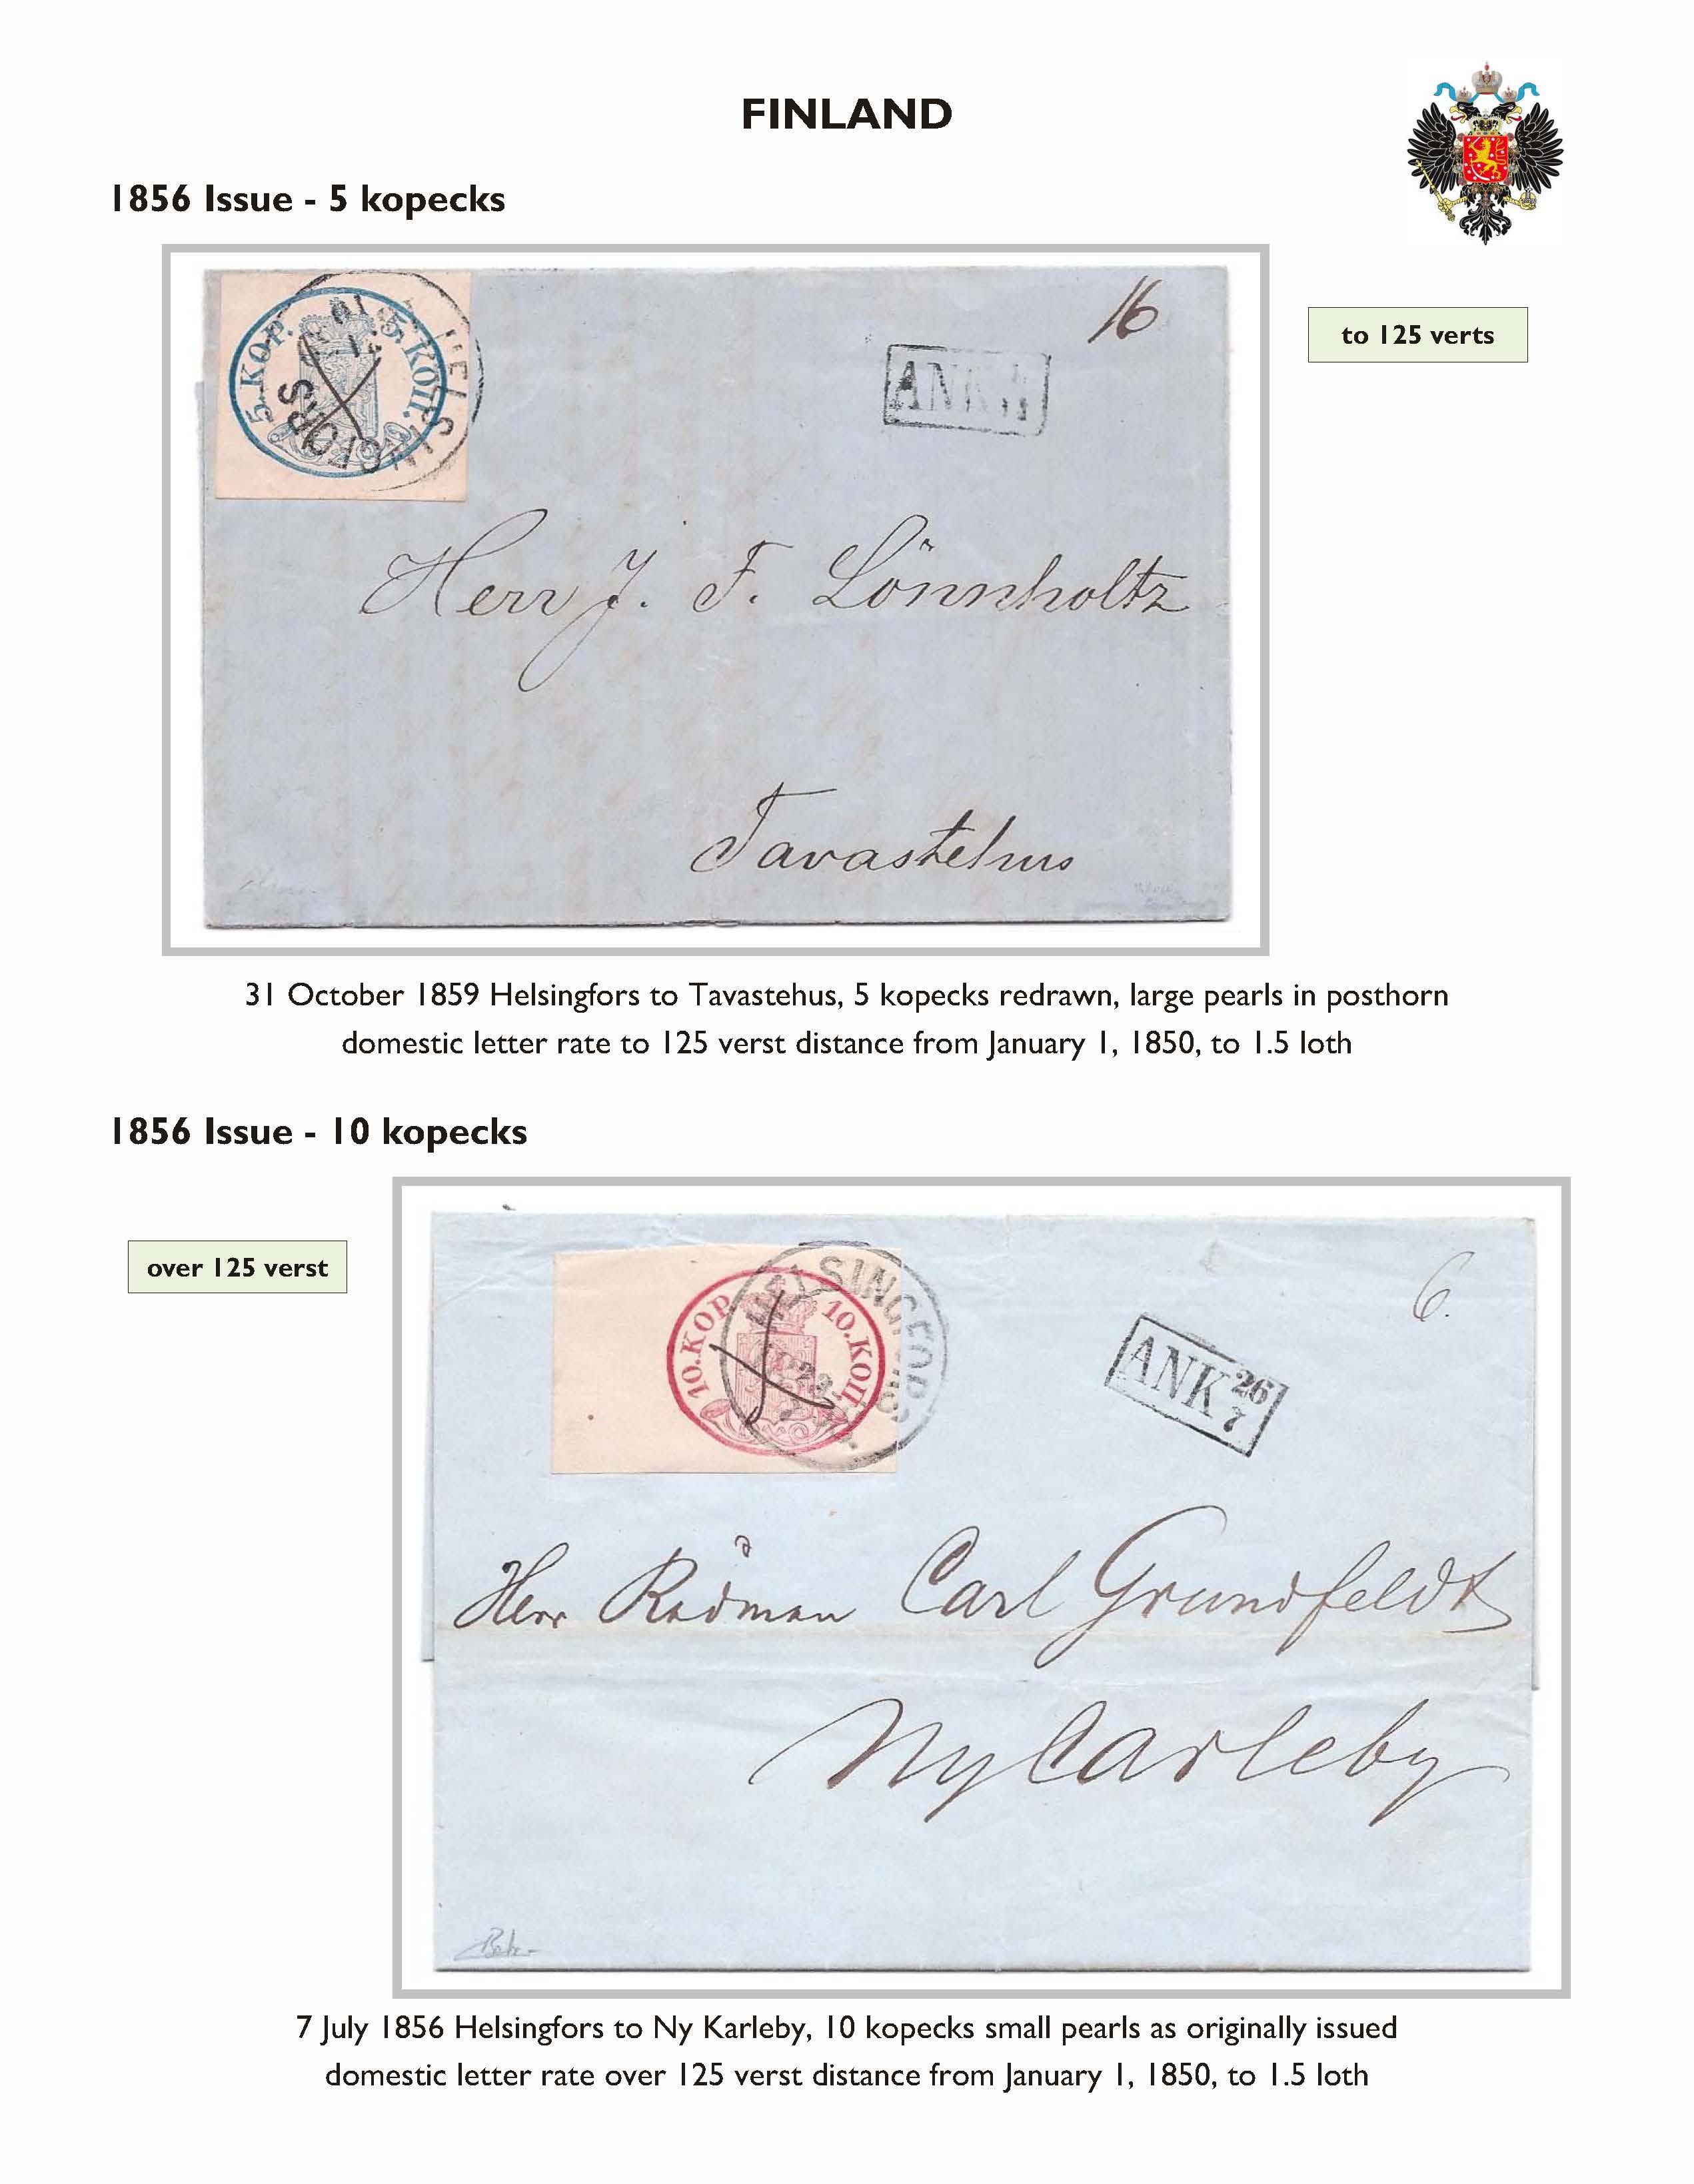 FINLAND
1856 Issue - 5 kopecks
to 125 verts
5.KOP. 5.КОП.
HELSINGFORS
16
ANK
Herr J. F. Lönnholtz
Tavastehus
31 October 1859 Helsingfors to Tavastehus, 5 kopecks redrawn, large pearls in posthorn
domestic letter rate to 125 verst distance from January 1, 1850, to 1.5 loth
1856 Issue - 10 kopecks
over 125 verst
10.KOP. 10.КОП.
HELSINGFORS
6.
ANK 26/7
Herr Rådman Carl Grundfeldt
NyCarleby
7 July 1856 Helsingfors to Ny Karleby, 10 kopecks small pearls as originally issued
domestic letter rate over 125 verst distance from January 1, 1850, to 1.5 loth